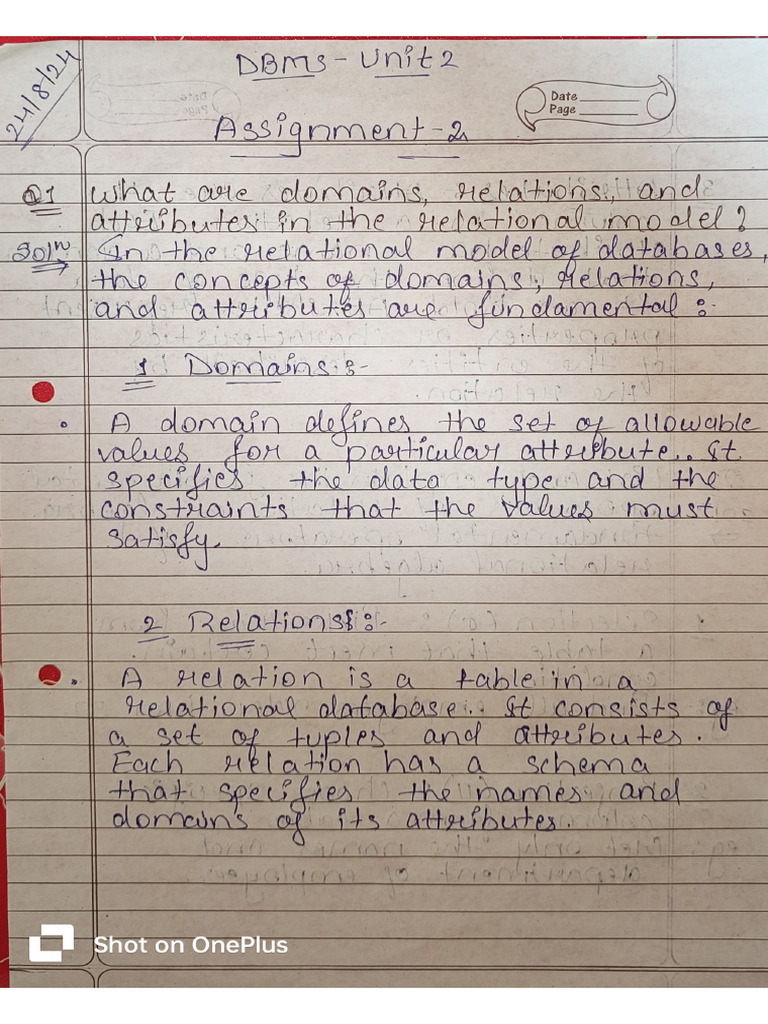 24/8/24
DBMS - Unit 2
Date
Page
Assignment - 2
Q1 What are domains, relations, and
attributes in the relational model?
Solⁿ In the relational model of databases,
the concepts of domains, relations,
and attributes are fundamental :-
1 Domains :-
• A domain defines the set of allowable
values for a particular attribute. It
specifies the data type and the
constraints that the values must
satisfy.
2 Relations :-
• A relation is a table in a
relational database. It consists of
a set of tuples and attributes.
Each relation has a schema
that specifies the names and
domains of its attributes.
Shot on OnePlus